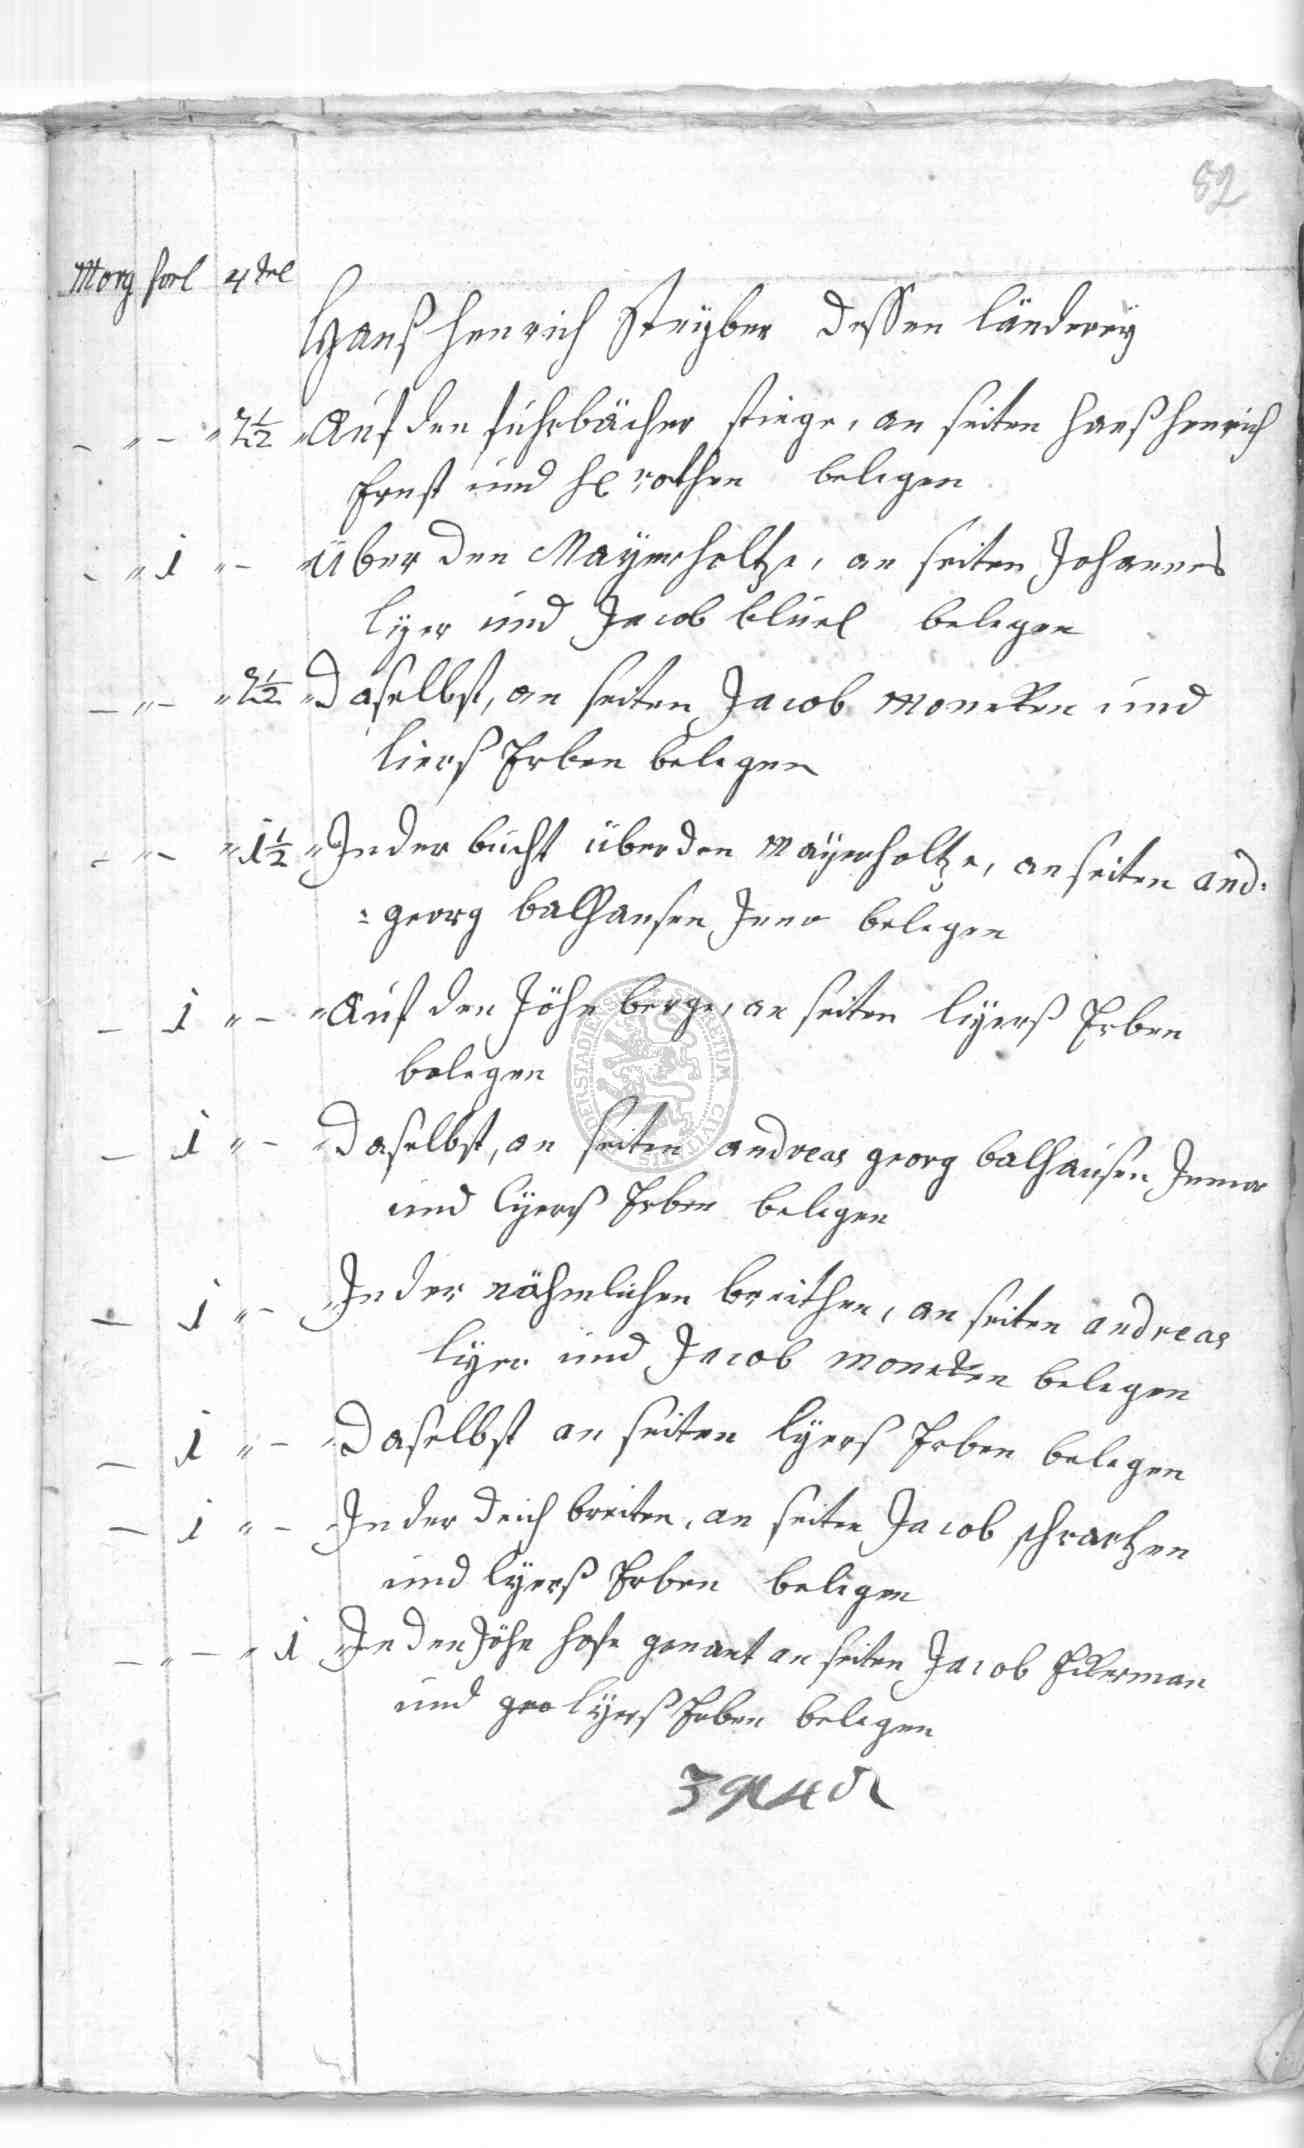 82
Morg forl 4tel
Hanß Henrich Steÿber dessen länderey
- " - " 2½ " Auf den fuhrbächer stiege, an seiten Hanß Henrich
Ernst und rothen belegen
- " 1 " - " Über den Maÿerholtze, an seiten Johannes
lÿer und Jacob bluel belegen
- " - " 2½ " Daselbst, an seiten Jacob Monecken und
lierß Erben belegen
- " - " 1½ " In der bucht über den Maÿerholtze, an seiten and:
: georg balhausen Junr belegen
- 1 " - " Auf den Höhe berge, an seiten lÿerß Erben
belegen
- 1 " - " Daselbst, an seiten andreas georg balhausen Junior
und lÿerß Erben belegen
- 1 " - " In der nähmlichen breithen, an seiten andreas
lÿer und Jacob Monecken belegen
- 1 " - " Daselbst an seiten lÿerß Erben belegen
- 1 " - In der deich breiten, an seiten Jacob schwartzen
und lÿerß Erben belegen
- " - " 1 " In den Höhe hofe genant an seiten Jacob Eckerman
und geo lÿerß Erben belegen